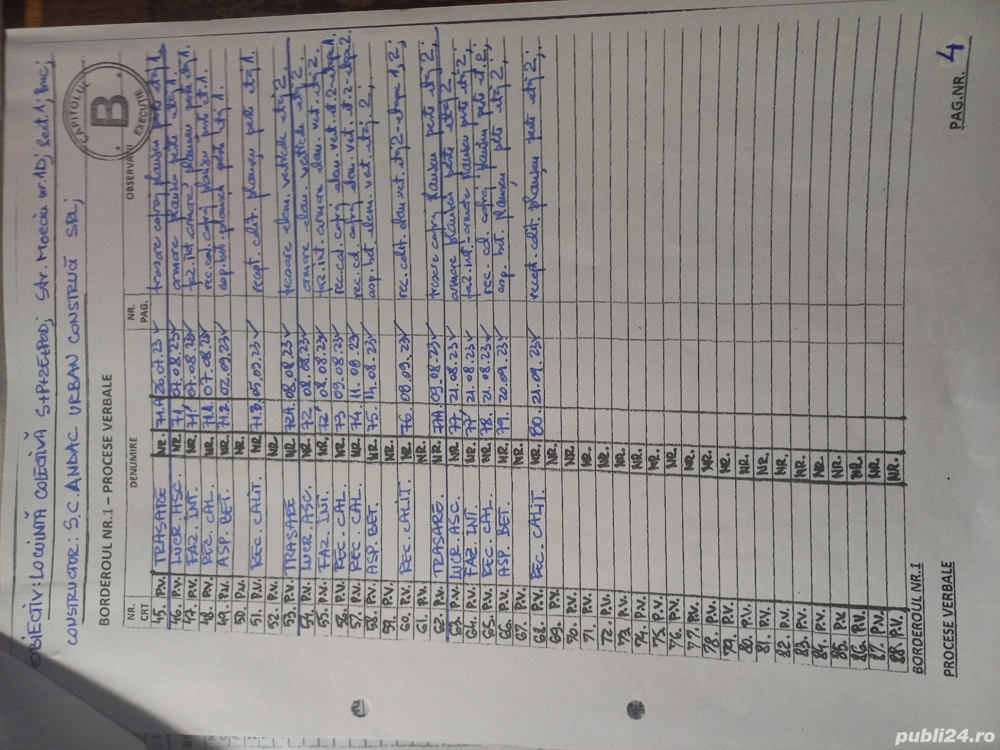 OBIECTIV: LOCUINȚĂ COLECTIVĂ S+P+2E+POD; Str. Moeciu nr. 1D; Sect. 1; Buc;
CONSTRUCTOR: S.C. ANDAC URBAN CONSTRUCT SRL;
CAPITOLUL B EXECUTIE
BORDEROUL NR.1 – PROCESE VERBALE
NR. CRT DENUMIRE NR. PAG. OBSERVAȚII
45. P.V. TRASARE NR. 71.A 26.07.23 ✓ trasare cofraj planșeu peste etaj 1.
46. P.V. LUCR. ASC. NR. 71. 07.08.23 ✓ armare planșeu peste etaj 1.
47. P.V. FAZ. INT. NR. 71' 07.08.23 ✓ faz. int. armare planșeu peste etaj 1.
48. P.V. REC. CAL. NR. 71.1. 07.08.23 ✓ rec. cal. cofraj planșeu peste et. 1.
49. P.V. ASP. BET. NR. 71.2. 02.09.23 ✓ asp. bet. planșeu peste etaj 1.
50. P.V. NR.
51. P.V. REC. CALIT. NR. 71.3. 05.09.23 ✓ recept. calit. planșeu peste etaj 1.
52. P.V. NR.
53. P.V. TRASARE NR. 72A 08.08.23 ✓ trasare elem. verticale etaj 2
54. P.V. LUCR. ASC. NR. 72 08.08.23 ✓ armare elem. verticale etaj 2
55. P.V. FAZ. INT. NR. 72' 08.08.23 ✓ faz. int. armare elem. vert. etaj 2
56. P.V. REC. CAL. NR. 73 09.08.23 ✓ rec. cal. cofraj elem. vert. et. 2 - etapa 1.
57. P.V. REC. CAL. NR. 74. 11.08.23 ✓ rec. cal. cofraj elem. vert. et. 2 - etapa 2
58. P.V. ASP. BET. NR. 75. 11.08.23 ✓ asp. bet. elem. vert. etaj 2;
59. P.V. NR.
60. P.V. REC. CALIT. NR. 76. 08.09.23 ✓ rec. calit. elem. vert. etaj 2 - etapa 1, 2;
61. P.V. NR.
62. P.V. TRASARE NR. 77A 09.08.23 ✓ trasare cofraj planșeu peste etaj 2;
63. P.V. LUCR. ASC. NR. 77. 21.08.23 ✓ armare planșeu peste etaj 2;
64. P.V. FAZ. INT. NR. 77' 21.08.23 ✓ faz. int. - armare planșeu peste etaj 2;
65. P.V. REC. CAL. NR. 78. 21.08.23 ✓ rec. cal. cofraj planșeu peste et. 2;
66. P.V. ASP. BET. NR. 79. 20.09.23 ✓ asp. bet. planșeu peste etaj 2;
67. P.V. NR.
68. P.V. REC. CALIT. NR. 80. 21.09.23 ✓ recept. calit. planșeu peste etaj 2;
69. P.V. NR.
70. P.V. NR.
71. P.V. NR.
72. P.V. NR.
73. P.V. NR.
74. P.V. NR.
75. P.V. NR.
76. P.V. NR.
77. P.V. NR.
78. P.V. NR.
79. P.V. NR.
80. P.V. NR.
81. P.V. NR.
82. P.V. NR.
83. P.V. NR.
84. P.V. NR.
85. P.V. NR.
86. P.V. NR.
87. P.V. NR.
88. P.V. NR.
BORDEROUL NR.1
PROCESE VERBALE
PAG.NR. 4
publi24.ro